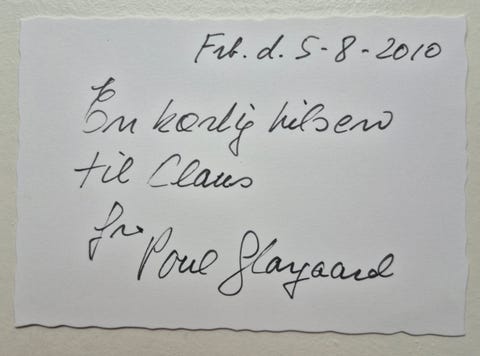 Frb. d. 5-8-2010
En kærlig hilsen
til Claus
fra
Poul Glargaard